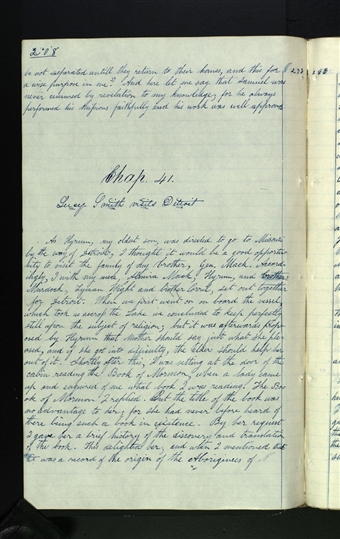 208
be not separated untill they return to their homes, and this for
a wise purpose in me." And here let me say that Samuel was
never censured by revelation to my knowledge, for he always
performed his missions faithfully and his work was well approved
Chap. 41.
Lucy Smith visits Detroit
As Hyrum, my oldest son, was directed to go to Missouri
by the way of Detroit, I thought it would be a good opportu-
nity to visit the family of my brother, Gen. Mack. Accord-
ingly, I with my niece, Almira Mack, Hyrum, and brothers
Murdock, Lyman Wight and Corril, set out together
for Detroit. When we first went on on board the vessel,
which took us across the Lake we concluded to keep perfectly
still upon the subject of religion; but it was afterwards prop-
osed by Hyrum that Mother should say just what she ple-
ased, and if she got into difficulty, the Elder should help her
out of it. Shortly after this, I was sitting at the door of the
cabin reading the Book of Mormon, when a lady came
up and enquired of me what book I was reading. The Bo-
ok of Mormon, I replied. But the title of the book was
no advantage to her, for she had never before heard of
there being such a book in existence. By her request
I gave her a brief history of the discovery and translation
of the book. This delighted her, and when I mentioned that
it was a record of the origin of the Aborigines of